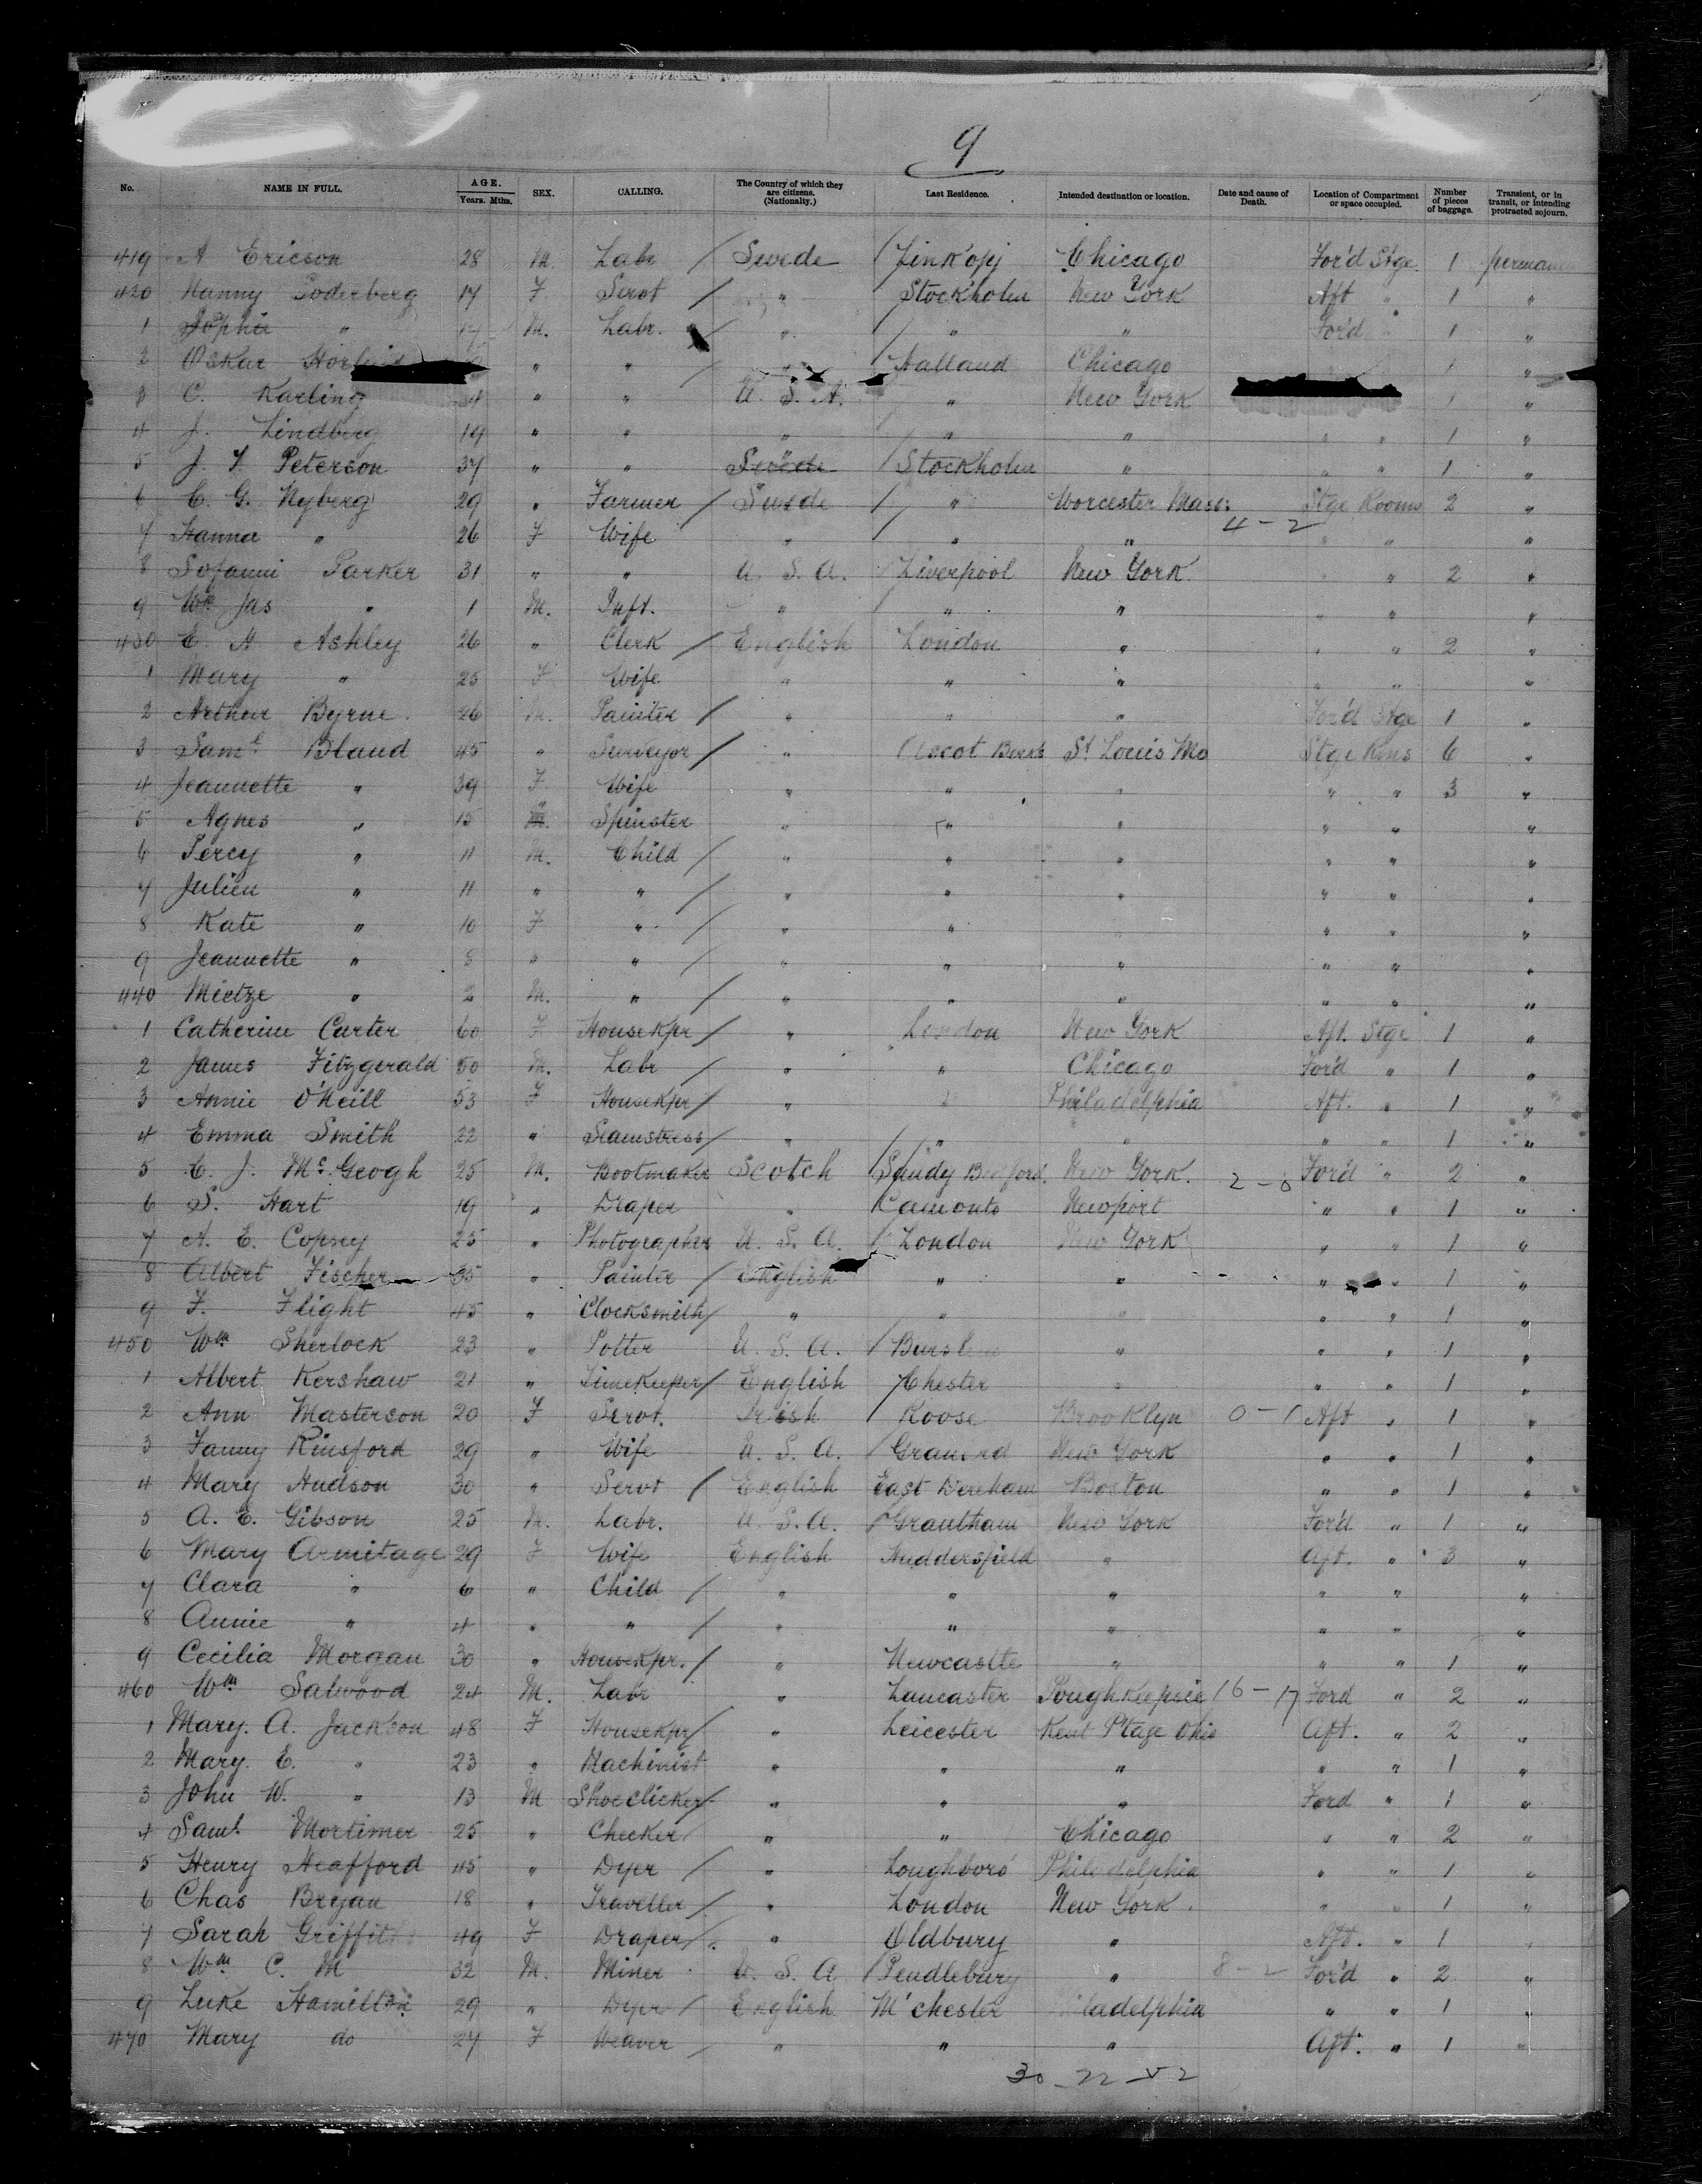 9
No. NAME IN FULL. AGE. Years. Mths. SEX. CALLING. The Country of which they are citizens. (Nationality.) Last Residence. Intended destination or location. Date and cause of Death. Location of Compartment or space occupied. Number of pieces of baggage. Transient, or in transit, or intending protracted sojourn.
419 A Ericson 28 M. Labr / Swede / Chicago For'd Stge. 1
420 Nanny Soderberg 17 F Servt / " Stockholm New York Aft " 1 "
1 Sophia " M. Labr. " / " " For'd " 1 "
2 Oskar " " / " Halland Chicago 1 "
3 C. Karling " " U. S. A. " New York 1 "
4 J. Lindberg 19 " " " " " " " 1 "
5 J. F. Peterson 37 " " Swede / Stockholm " " " 1 "
6 C. G. Nyberg 29 " Farmer / Swede / " Worcester Mass: Stge Rooms 2 "
7 Hanna " 26 F Wife " / " " 4-2 " " "
8 Parker 31 " " U. S. A. / Liverpool New York " " 2 "
9 Wm Jas " 1 M. Inft. " / " " " " "
430 E. H Ashley 26 " Clerk / English London " " " 2 "
1 Mary " 25 F Wife " " " " " "
2 Arthur Byrne. 26 M. Painter / " " " For'd Stge 1 "
3 Saml Bland 45 " Surveyor / " Ascot Berks St Louis Mo Stge Rms 6 "
4 Jeannette " 39 F Wife " " " " " 3 "
5 Agnes " 15 M. Spinster " " " " " "
6 Percy " 11 M. Child / " " " " " "
7 Julien " 11 " " / " " " " " "
8 Kate " 10 F " / " " " " "
9 Jeannette " 8 " " / " " " " " "
440 Mietze " 2 M. " / " " " " " "
1 Catherine Carter 60 F Housekpr / " London New York Aft. Stge 1 "
2 James Fitzgerald 50 M. Labr / " " Chicago For'd " 1 "
3 Annie O'Neill 53 F Housekpr / " " Philadelphia Aft. " 1 "
4 Emma Smith 22 " Seamstress / " / " " " " 1 "
5 C. J. McGeogh 25 M. Bootmaker Scotch Sandy Bedford. New York. 2-0 For'd " 2 "
6 S. Hart 19 " Draper " Newport " " 1 "
7 A. E. Copsey 25 " Photographer U. S. A. / London New York " " 1 "
8 Albert Fischer 35 " Painter / English " " " " 1 "
9 F. Flight 45 " Clocksmith / " " " " " 1 "
450 Wm Sherlock 23 " Potter U. S. A. / Burslem " " " 1 "
1 Albert Kershaw 21 " Timekeeper / English / Chester " " " 1 "
2 Ann Masterson 20 F Servt. Irish Roose Brooklyn 0-1 Aft " 1 "
3 Fanny Kinsford 29 " Wife U. S. A. / New York " " 1 "
4 Mary Hudson 30 " Servt / English East Dereham Boston " " 1 "
5 A. E. Gibson 25 M. Labr. U. S. A. / Grantham New York For'd " 1 "
6 Mary Armitage 29 F Wife English Huddersfield " Aft. " 3 "
7 Clara " 6 " Child / " " " " " "
8 Annie " 4 " " / " " " " " "
9 Cecilia Morgan 30 " Housekpr. / " Newcastle " " " 1 "
460 Wm Salwood 24 M. Labr " Lancaster Poughkeepsie 16-17 Ford " 2 "
1 Mary. A. Jackson 48 F Housekpr / " Leicester Kent Ptage Ohio Aft. " 2 "
2 Mary. E. " 23 " Machinist " " " " " 1 "
3 John W. " 13 M Shoeclicker / " " " Ford " 1 "
4 Saml. Mortimer 25 " Checker / " " Chicago " " 2 "
5 Henry Heafford 45 " Dyer / " Loughboro' Philadelphia " " 1 "
6 Chas Bryan 18 " Traveller / " London New York. " " 1 "
7 Sarah Griffith 49 F Draper / " Oldbury " Aft. " 1 "
8 Wm C. M 32 M. Miner U. S. A / Pendlebury " 8-2 For'd " 2 "
9 Luke Hamilton 29 " Dyer / English M'chester Philadelphia " " 1 "
470 Mary do 27 F Weaver / " " " Aft. " 1 "
30-22-52